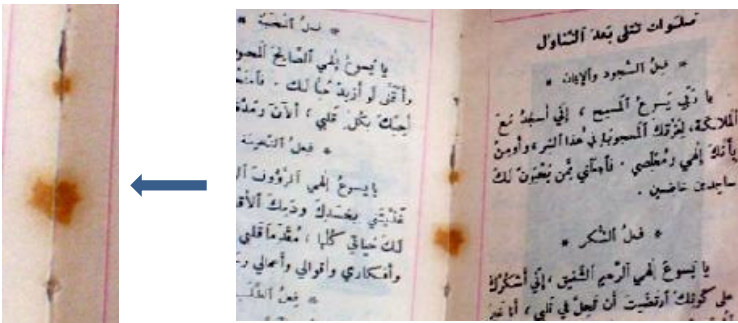 صلوات تتلى بعد التناول
* فعل السجود والإيمان *
يا ربي يسوع المسيح ، إني أسجد مع
الملائكة، لعزتك المحجوبة في هذا السر ، وأومن
بأنك إلهي ومخلصي . لك
ساجدين خاضعين .
* فعل الشكر *
يا يسوع إلهي الرحيم الشفيق ، إني أشكرك
على كونك ارتضيت أن تحل في قلبي ، أنا
* فعل المحبة *
يا يسوع إلهي الصالح
لو أزيد حبا لك .
أحبك بكل قلبي ، الآن
* فعل
يا يسوع إلهي الرؤوف
غذيتني بجسدك ودمك
لك حياتي كلها ، مقدما قلبي
وأفكاري وأقوالي وأعمالي
* فعل